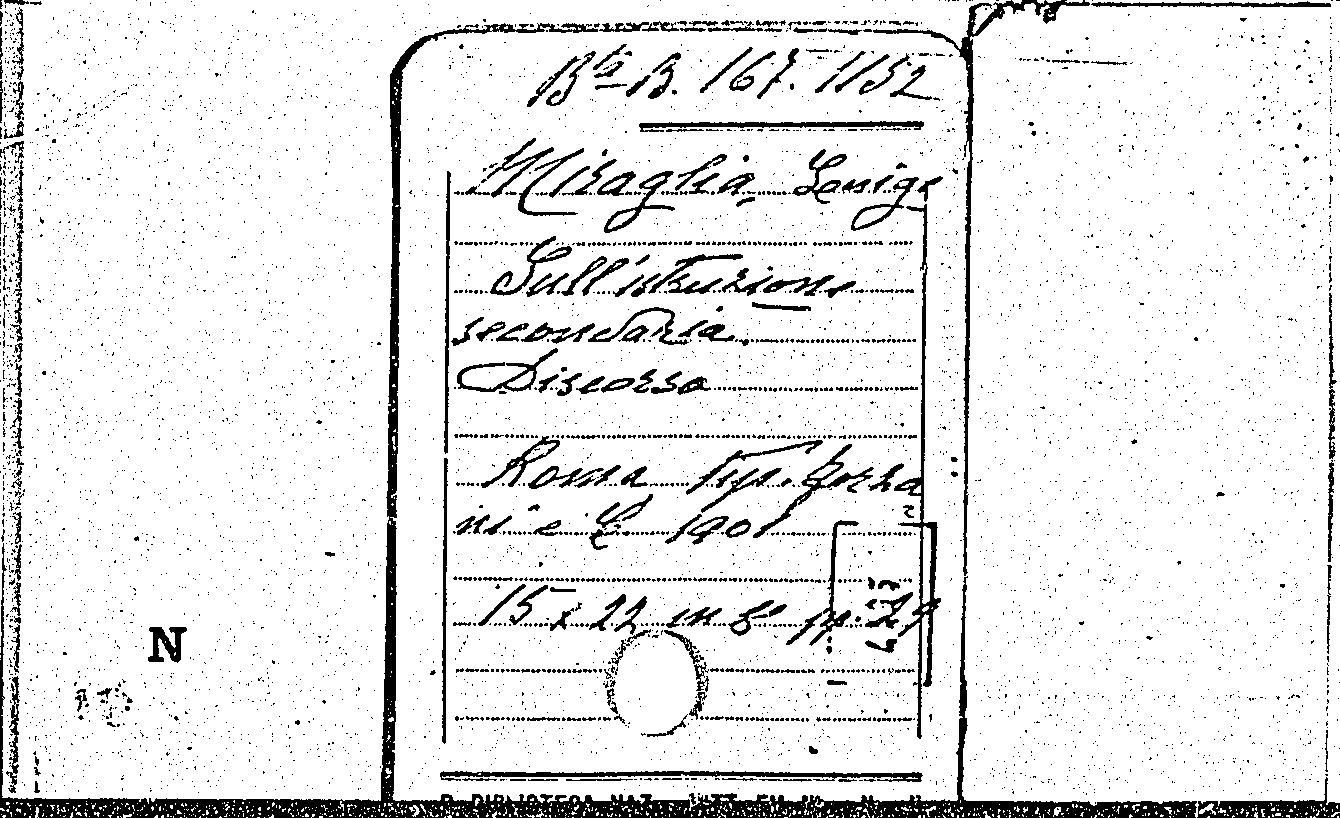 B.ta B. 167. 1152
Miraglia, Luigi
Sull'istruzione
secondaria.
Discorso
Roma Tip. Forza
ni e C. 1901
15 x 22 in 8° pp. 29
N